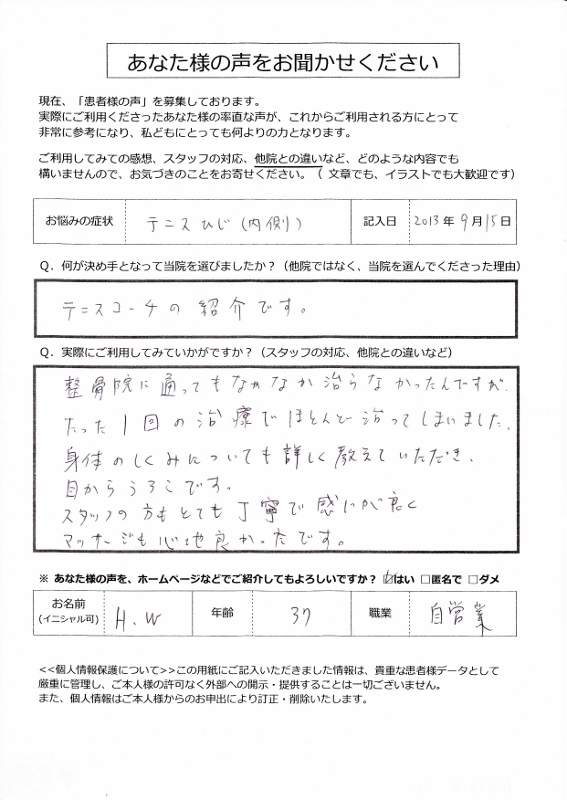 あなた様の声をお聞かせください
現在、「患者様の声」を募集しております。
実際にご利用くださったあなた様の率直な声が、これからご利用される方にとって
非常に参考になり、私どもにとっても何よりの力となります。
ご利用してみての感想、スタッフの対応、他院との違いなど、どのような内容でも
構いませんので、お気づきのことをお寄せください。（ 文章でも、イラストでも大歓迎です）
お悩みの症状 テニスひじ（内側） 記入日 2013年9月15日
Ｑ．何が決め手となって当院を選びましたか？（他院ではなく、当院を選んでくださった理由）
テニスコーチの紹介です。
Ｑ．実際にご利用してみていかがですか？（スタッフの対応、他院との違いなど）
整骨院に通ってもなかなか治らなかったんですが、
たった1回の治療でほとんど治ってしまいました。
身体のしくみについても詳しく教えていただき、
目からうろこです。
スタッフの方もとても丁寧で感じが良く
マッサージも心地良かったです。
※ あなた様の声を、ホームページなどでご紹介してもよろしいですか？ ☑はい □匿名で □ダメ
お名前
(イニシャル可) H.W 年齢 37 職業 自営業
<<個人情報保護について>>この用紙にご記入いただきました情報は、貴重な患者様データとして
厳重に管理し、ご本人様の許可なく外部への開示・提供することは一切ございません。
また、個人情報はご本人様からのお申出により訂正・削除いたします。